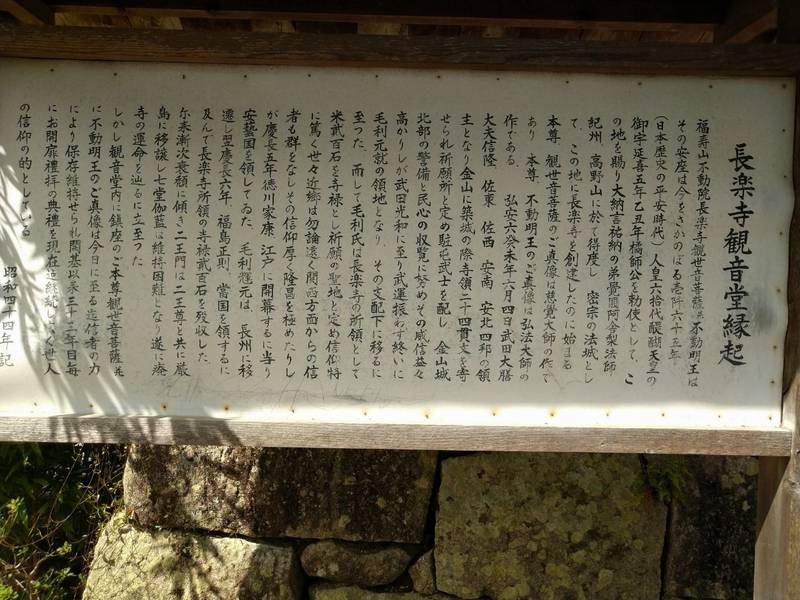 長楽寺観音堂縁起
福寿山不動院長楽寺観世音菩薩並不動明王は
その安座は今をさかのぼる壱阡六十五年
(日本歴史の平安時代)人皇六拾代醍醐天皇の
御宇延喜五年乙丑年橘師公を勅使として、こ
の地を賜り大納言祐納の弟覺圓阿舎梨法師
紀州、高野山に於て得度し、密宗の法城とし
て、この地に長楽寺を創建したのに始まる
本尊、観世音菩薩のご真像は慈覚大師の作で
あり、本尊、不動明王のご真像は弘法大師の
作である、弘安六癸未年六月四日武田大膳
大夫信隆、佐東、佐西、安南、安北四郡の領
主となり金山に築城の際寺領二十四貫文を寺
せられ祈願所と定め駐屯武士を配し、金山城
北部の警備と民心の収覧に努めその威信益々
高かりしが武田光和に至り武運振わず終いに
毛利元就の領地となり、その支配下に移るに
至った、而して毛利氏は長楽寺の所領として
米武百石を寺禄とし祈願の聖地と定め信仰特
に篤く世々近郷は勿論遠く関西方面からの信
者も群をなしその信仰厚く隆昌を極めたりし
が慶長五年徳川家康、江戸に開幕するに当り
安藝国を領してゐた、毛利輝元は、長州に移
遷し翌慶長六年、福島正則、當国を領するに
及んで長楽寺所領の寺禄武百石を没収した
尓来漸次衰頽に傾き二王門は二王尊と共に厳
島に移譲し七堂伽藍は維持困難となり遂に廃
寺の運命を辿るに立至った
しかし観音堂内に鎮座のご本尊観世音菩薩並
に不動明王のご真像は今日に至る迄信者の力
により保存維持せられ開基以来三十三年目毎
にお開扉禮拝の典禮を現在迄継続しひろく世人
の信仰の的としている
昭和四十四年 記